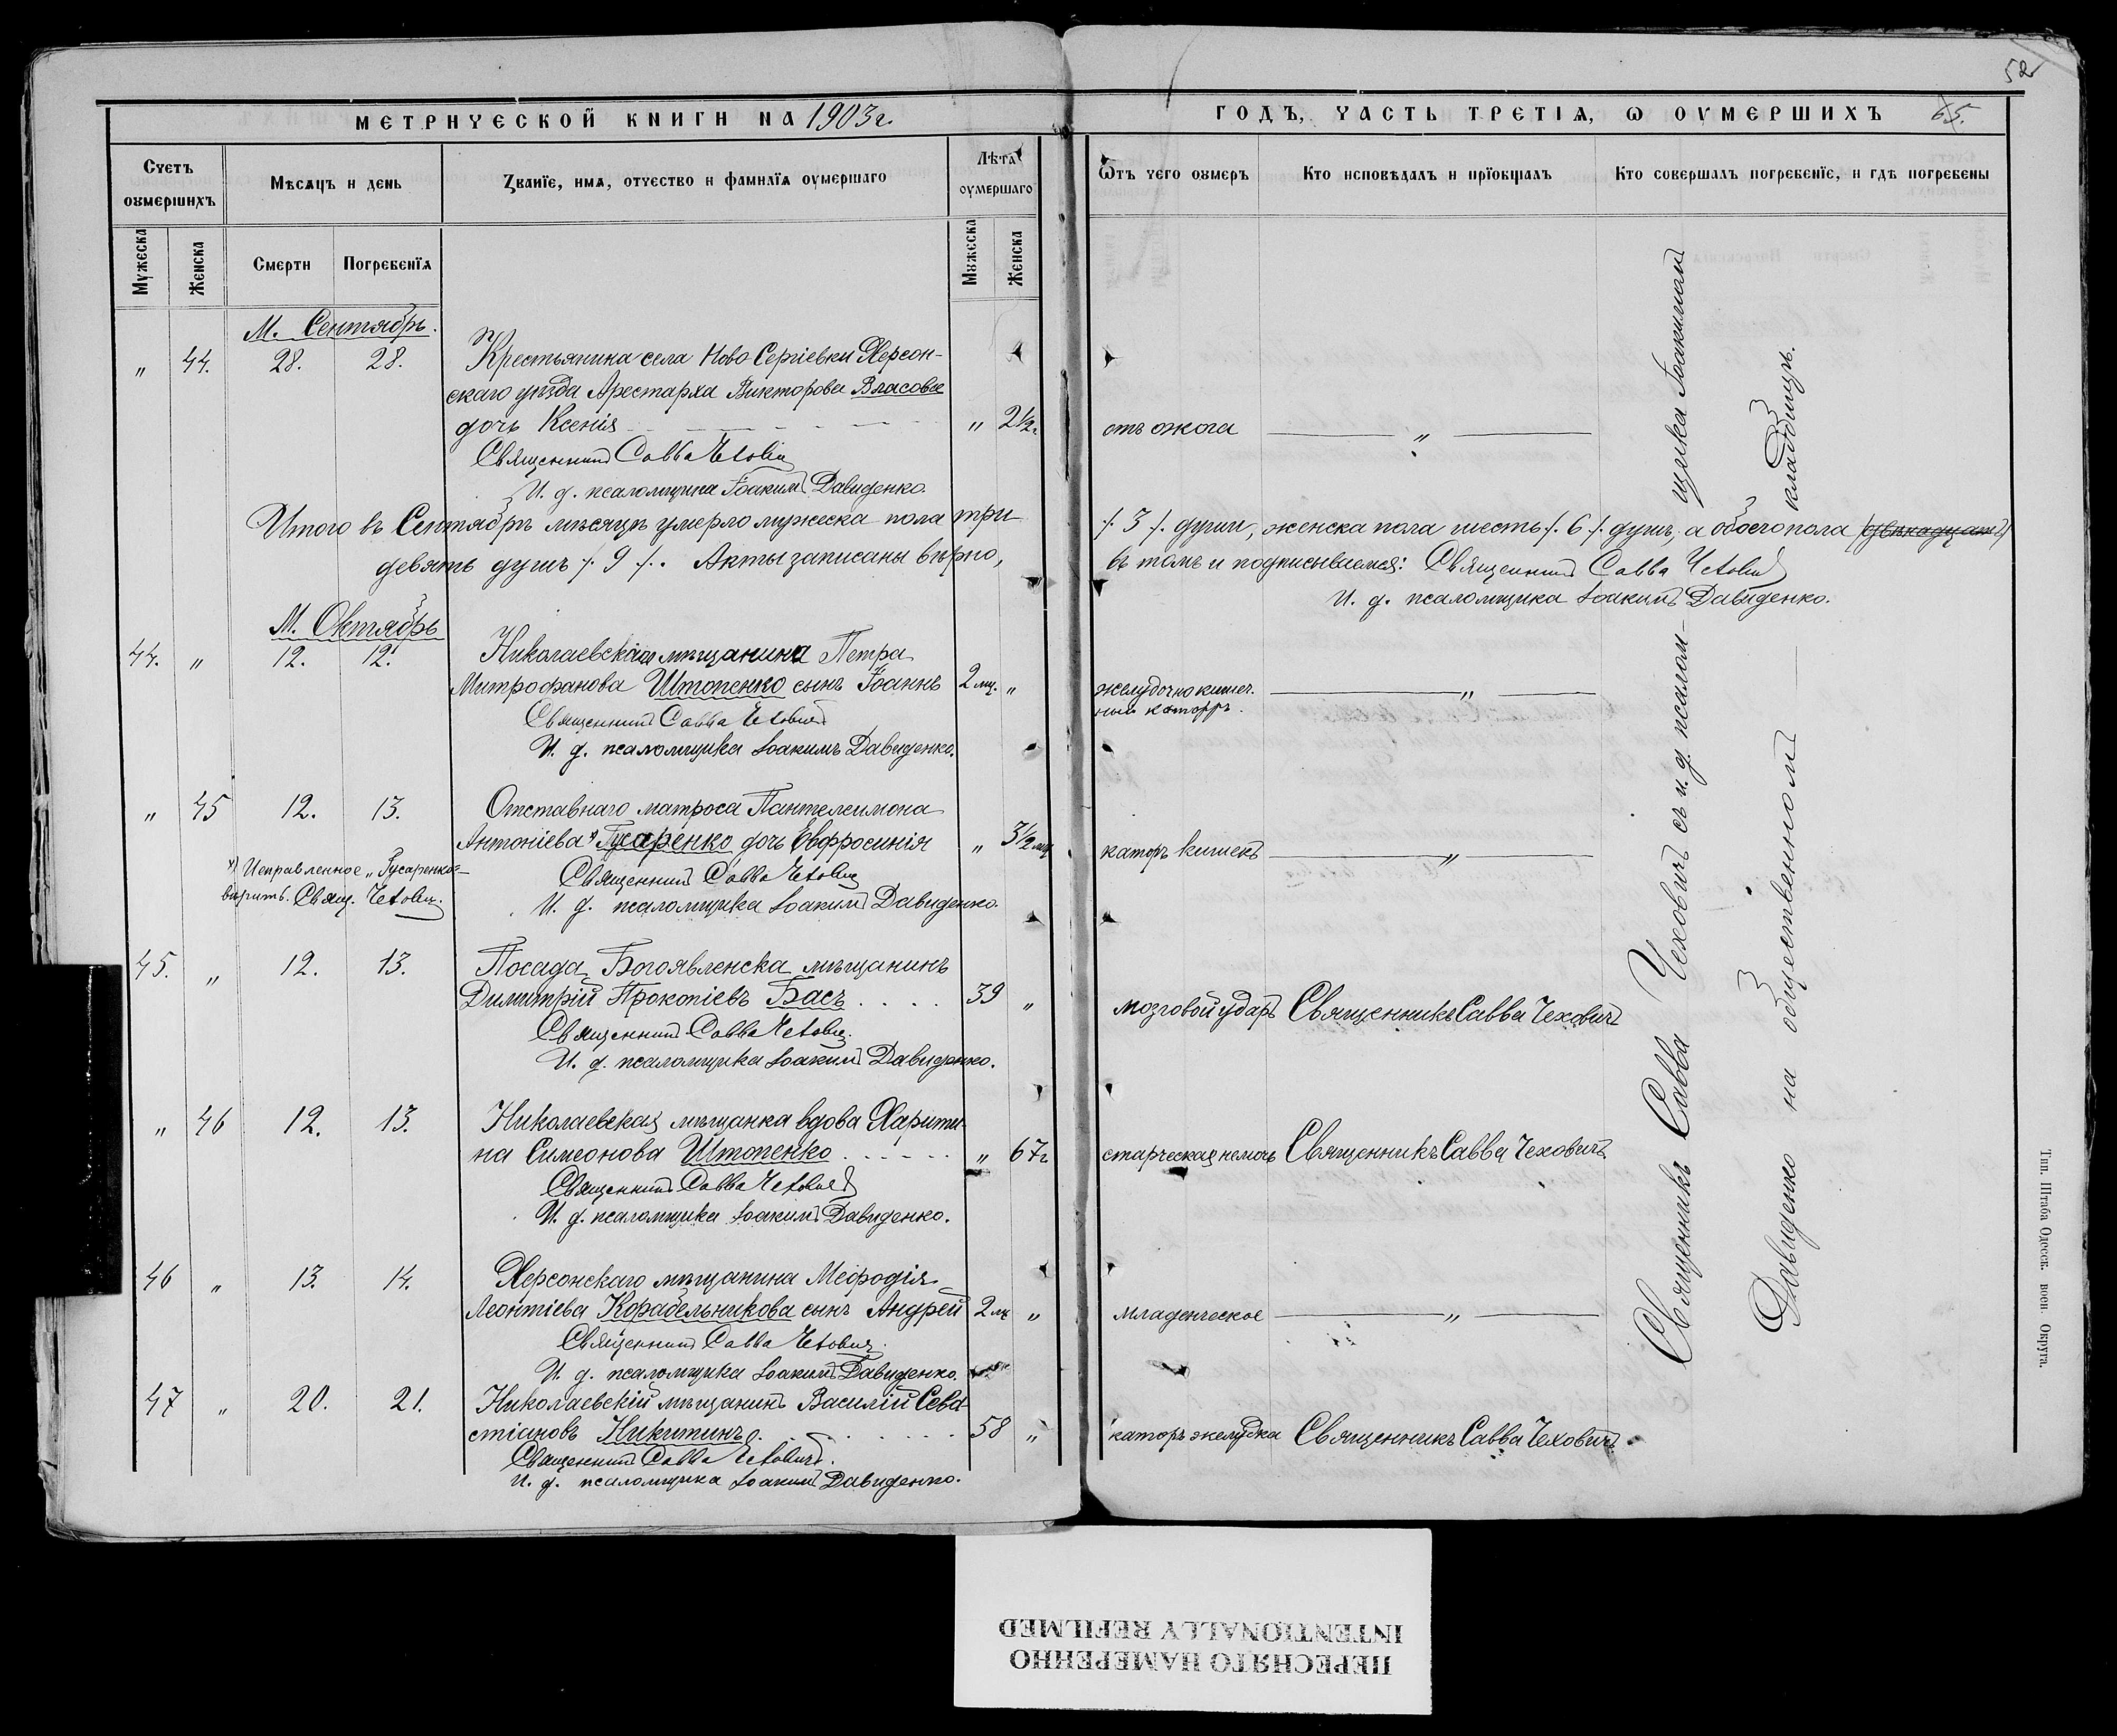 52
МЕТРИЧЕСКОЙ КНИГИ НА 1903 г.
ГОДЪ, ЧАСТЬ ТРЕТІѦ, Ѡ ОУМЕРШИХЪ 65.
Счетъ оумершихъ
Мѣсѧцъ и день
Званїе, имѧ, отчество и фамилїѧ оумершаго
Лѣта оумершаго
Ѿтъ чего оумеръ
Кто исповѣдалъ и прїобщалъ
Кто совершалъ погребенїе, и гдѣ погребены
Мужеска
Женска
Смерти
Погребенїѧ
Мужеска
Женска
М. Сентябрь.
" 44. 28. 28. Крестьянина села Ново Сергіевки Херсон-
скаго уѣзда Арестарха Викторова Власова
дочь Ксенія " 2½г. отъ ожога — " —
Священникъ Савва Чеховичъ
И. д. псаломщика Іоакимъ Давиденко.
Итого въ Сентябрѣ мѣсяцѣ умерло мужеска пола три ./. 3 ./. души, женска пола шесть ./. 6 ./. душъ, а обоего пола (двѣнадцать)
девять душъ ./. 9 ./. Акты записаны вѣрно, въ томъ и подписываемся: Священникъ Савва Чеховичъ
И. д. псаломщика Іоакимъ Давиденко.
М. Октябрь
44. " 12. 12. Николаевскаго мѣщанина Петра
Митрофанова Штопенко сынъ Іоаннъ 2 мц. " желудочно кишеч.
ный каторръ. — " —
Священникъ Савва Чеховичъ
И. д. псаломщика Іоакимъ Давиденко.
" 45 12. 13. Отставнаго матроса Пантелеимона
Антоніева *) Гусаренко дочь Евфросинія " 3½ мц каторъ кишекъ — " —
*) Исправленное „Гусаренко"
вѣрить. Свящ. Чеховичъ.
Священникъ Савва Чеховичъ
И. д. псаломщика Іоакимъ Давиденко.
45. " 12. 13. Посада Богоявленска мѣщанинъ
Димитрій Прокопіевъ Басъ 39 " мозговой ударъ Священникъ Савва Чеховичъ
Священникъ Савва Чеховичъ.
И. д. псаломщика Іоакимъ Давиденко.
" 46 12. 13. Николаевская мѣщанка вдова Харити-
на Симеонова Штопенко " 67г. старческая немочь Священникъ Савва Чеховичъ
Священникъ Савва Чеховичъ
И. д. псаломщика Іоакимъ Давиденко.
46 " 13. 14. Херсонскаго мѣщанина Меѳодія
Леонтіева Корабельникова сынъ Андрей 2 мц " младенческое — " —
Священникъ Савва Чеховичъ.
И. д. псаломщика Іоакимъ Давиденко.
47 " 20. 21. Николаевскій мѣщанинъ Василій Сева-
стіановъ Никитинъ 58 " каторъ желудка Священникъ Савва Чеховичъ
Священникъ Савва Чеховичъ.
И. д. псаломщика Іоакимъ Давиденко.
Священникъ Савва Чеховичъ съ и. д. псалом-щика Іоакимомъ
Давиденко на общественномъ кладбищѣ.
Тип. Штаба Одесск. воен. Округа.
ПЕРЕСНЯТО НАМЕРЕННО
INTENTIONALLY REFILMED